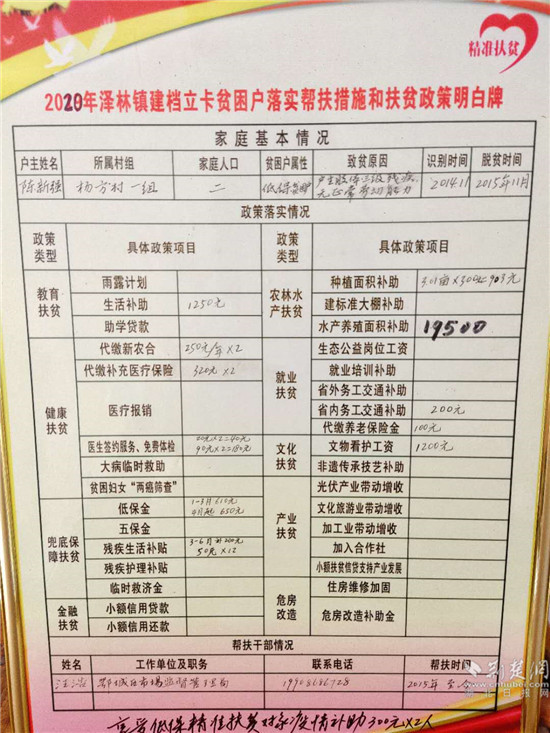 精准扶贫
2020年泽林镇建档立卡贫困户落实帮扶措施和扶贫政策明白牌
家庭基本情况
户主姓名 所属村组 家庭人口 贫困户属性 致贫原因 识别时间 脱贫时间
陈新强 杨方村一组 二 低保贫困户 户主肢体三级残疾 无正常劳动能力 2014.11 2015年11月
政策落实情况
政策类型 具体政策项目 政策类型 具体政策项目
教育扶贫 雨露计划 农林水产扶贫 种植面积补助 3.01亩×300元=903元
生活补助 1250元 建标准大棚补助
助学贷款 水产养殖面积补助 19500
健康扶贫 代缴新农合 250元/年×2 就业扶贫 生态公益岗位工资
代缴补充医疗保险 320元×2 就业培训补助
医疗报销 省外务工交通补助
省内务工交通补助 200元
代缴养老保险金 100元
医生签约服务、免费体检 20元×2=40元 90元×2=180元 文化扶贫 文物看护工资 1200元
大病临时救助 非遗传承技艺补助
贫困妇女“两癌筛查” 产业扶贫 光伏产业带动增收
兜底保障扶贫 低保金 1-3月610元 4月起650元 文化旅游业带动增收
五保金 加工业带动增收
残疾生活补贴 3-6月补200元 50元×12 加入合作社
残疾护理补贴 小额扶贫信贷支持产业发展
临时救济金 危房改造 住房维修加固
金融扶贫 小额信用贷款 危房改造补助金
小额信用还款
帮扶干部情况
姓名 工作单位及职务 联系电话 帮扶时间
汪浩 鄂城区市场监督管理局 19908686728 2015年至今
享受低保精准扶贫对象疫情补助300元×2人
荆楚网